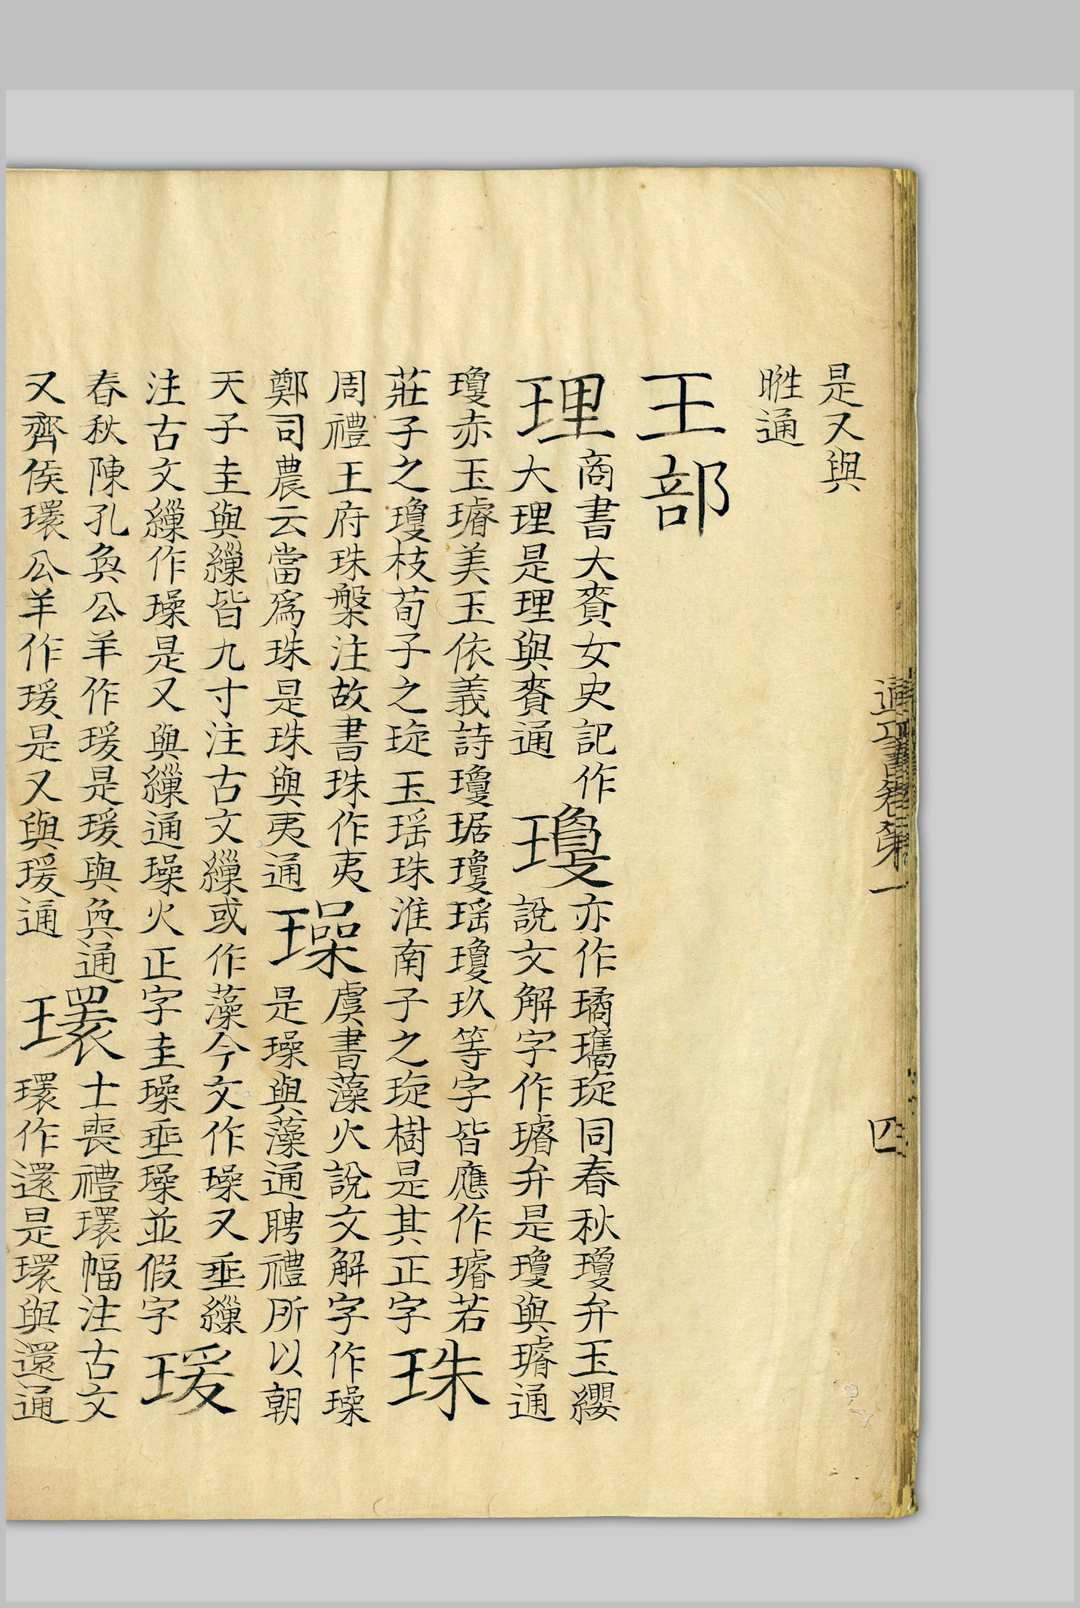 是又與
通
王部
理
商書大賚女史記作
大理是理與賚通
瓊
亦作璚瓗琁同春秋瓊弁玉纓
說文解字作璿弁是瓊與璿通
瓊赤玉璿美玉依義詩瓊琚瓊瑶瓊玖等字皆應作璿若
莊子之瓊枝荀子之琁玉瑶珠淮南子之琁樹是其正字
珠
周禮王府珠槃注故書珠作夷
鄭司農云當爲珠是珠與夷通
璪
虞書藻火說文解字作璪
是璪與藻通聘禮所以朝
天子圭與繅皆九寸注古文繅或作藻今文作璪又垂繅
注古文繅作璪是又與繅通璪火正字圭璪垂璪並假字
瑗
春秋陳孔奐公羊作瑗是瑗與奐通
又齊侯環公羊作瑗是又與瑗通
環
士喪禮環幅注古文
環作還是環與還通
通正書卷第一
四